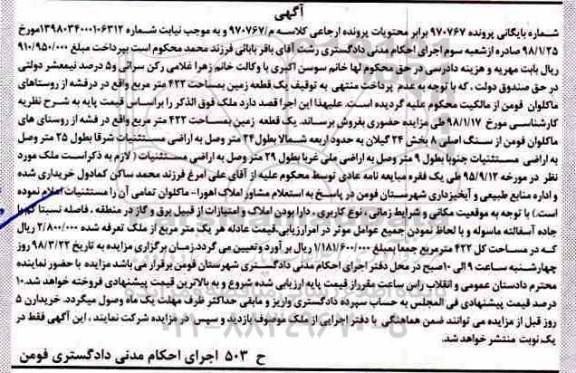 آگهی
شماره بایگانی پرونده ۹۷۰۷۶۷ برابر محتویات پرونده ارجاعی کلاسه م/۹۷۰۷۶۷ و به موجب نیابت شماره ۱۳۹۸۰۳۴۰۰۰۱۰۶۳۱۲مورخ
۹۸/۱/۲۵ صادره ازشعبه سوم اجرای احکام مدنی دادگستری رشت آقای باقر بابائی فرزند محمد محکوم است بپرداخت مبلغ ۹۱۰/۹۵۰/۰۰۰
ریال بابت مهریه و هزینه دادرسی در حق محکوم لها خانم سوسن اکبری با وکالت خانم زهرا غلامی رکن سرائی و۵ درصد نیمعشر دولتی
در حق صندوق دولت ، که با توجه به عدم پرداخت منتهی به توقیف یک قطعه زمین بمساحت ۴۲۲ متر مربع واقع در درفشه از روستاهای
ماکلوان فومن از مالکیت محکوم علیه گردیده است. علیهذا این اجرا قصد دارد ملک فوق الذکر را براساس قیمت پایه به شرح نظریه
کارشناسی مورخ ۹۸/۱/۱۷ طی مزایده حضوری بفروش برساند. یک قطعه زمین بمساحت ۴۲۲ متر مربع واقع در فشه از روستای های
ماکلوان فومن از سنگ اصلی ۸ بخش ۲۴ گیلان به حدود اربعه شمالا بطول ۲۴ متر وصل به اراضی مستثنیات شرقا بطول ۲۵ متر وصل
به اراضی مستثنیات جنوبا بطول ۹ متر وصل به اراضی ملی غربا بطول ۲۹ متر وصل به اراضی مستثنیات ( لازم به ذکراست ملک مورد
نظر در مورخه ۹۵/۹/۱۲ طی یک فقره مبایعه نامه عادی توسط محکوم علیه از آقای علی آمرغ فرزند محمد ساکن کمادول خریداری شده
و اداره منابع طبیعی و آبخیزداری شهرستان فومن در پاسخ به استعلام مشاور املاک اهورا- ماکلوان تمامی آن را مستثنیات اعلام نموده
است) با توجه به موقعیت مکانی و شرایط زمانی ، نوع کاربری ، دارا بودن املاک و امتیازات از قبیل برق و گاز در منطقه ، فاصله نسبتا کم با
جاده آسفالته ماسوله و با لحاظ نمودن جمیع عوامل موثر در امرارزیابی،قیمت عادله هر یک متر مربع از ملک تعرفه شده ۲/۸۰۰/۰۰۰ ریال
که در مساحت کل ۴۲۲ مترمربع جمعا بمبلغ ۱/۱۸۱/۶۰۰/۰۰۰ ریال بر آورد وتعیین می گردد.زمان برگزاری مزایده به تاریخ ۹۸/۳/۲۲ روز
چهارشنبه ساعت ۹ الی ۱۰صبح در محل دفتر اجرای احکام مدنی دادگستری شهرستان فومن برقرار می باشد مزایده با حضور نماینده
محترم دادستان عمومی و انقلاب راس ساعت مقرراز قیمت پایه ارزیابی شده شروع و به بالاترین قیمت پیشنهادی فروخته خواهد شد.۱۰
درصد قیمت پیشنهادی فی المجلس به حساب سپرده دادگستری واریز و مابقی حداکثر ظرف مهلت یک ماه وصول میگردد. خریداران ۵
روز قبل از مزایده می توانند ضمن هماهنگی با دفتر اجرایی از ملک موصوف بازدید و سپس در مزایده شرکت نمایند ، این آگهی فقط در
یک نوبت منتشر خواهد شد.
ح ۵۰۳ اجرای احکام مدنی دادگستری فومن
۰۲۱-۸۸۳۴۹۶۷۰-۵